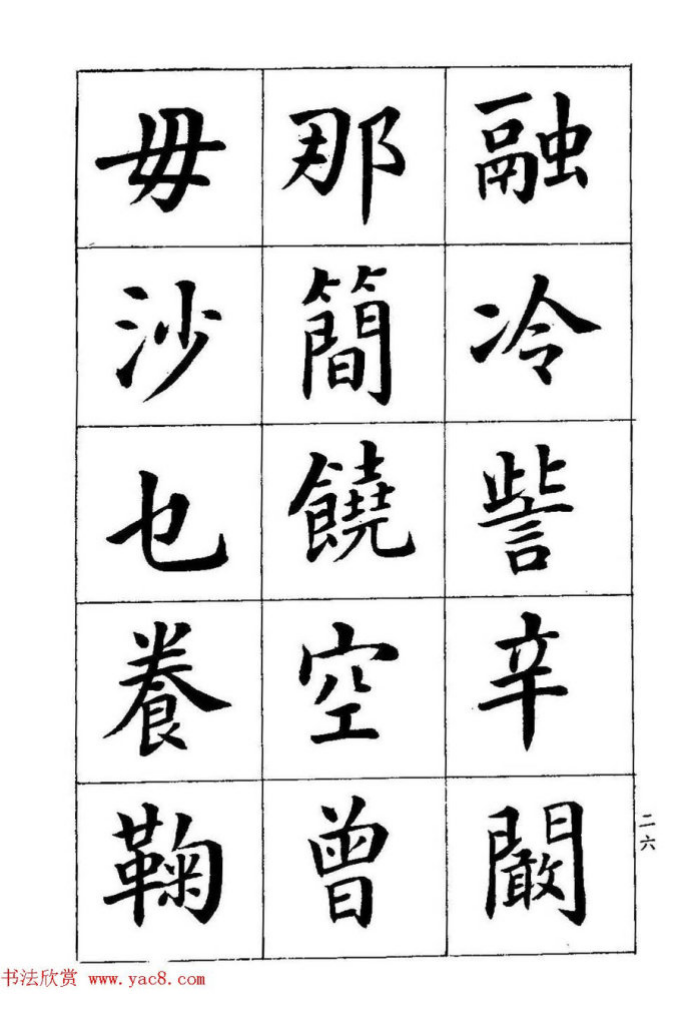 融冷訾辛闞
那簡饒空曾
毋沙乜養鞠
二六
书法欣赏 www.yac8.com